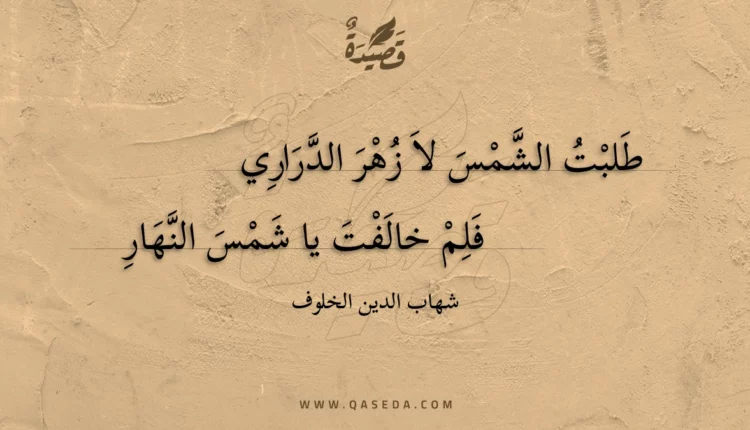 قَصِيْدَةٌ
طَلَبْتُ الشَّمْسَ لاَ زُهْرَ الدَّرَارِي
فَلِمْ خالَفْتَ يا شَمْسَ النَّهَارِ
شهاب الدين الخلوف
WWW.QASEDA.COM